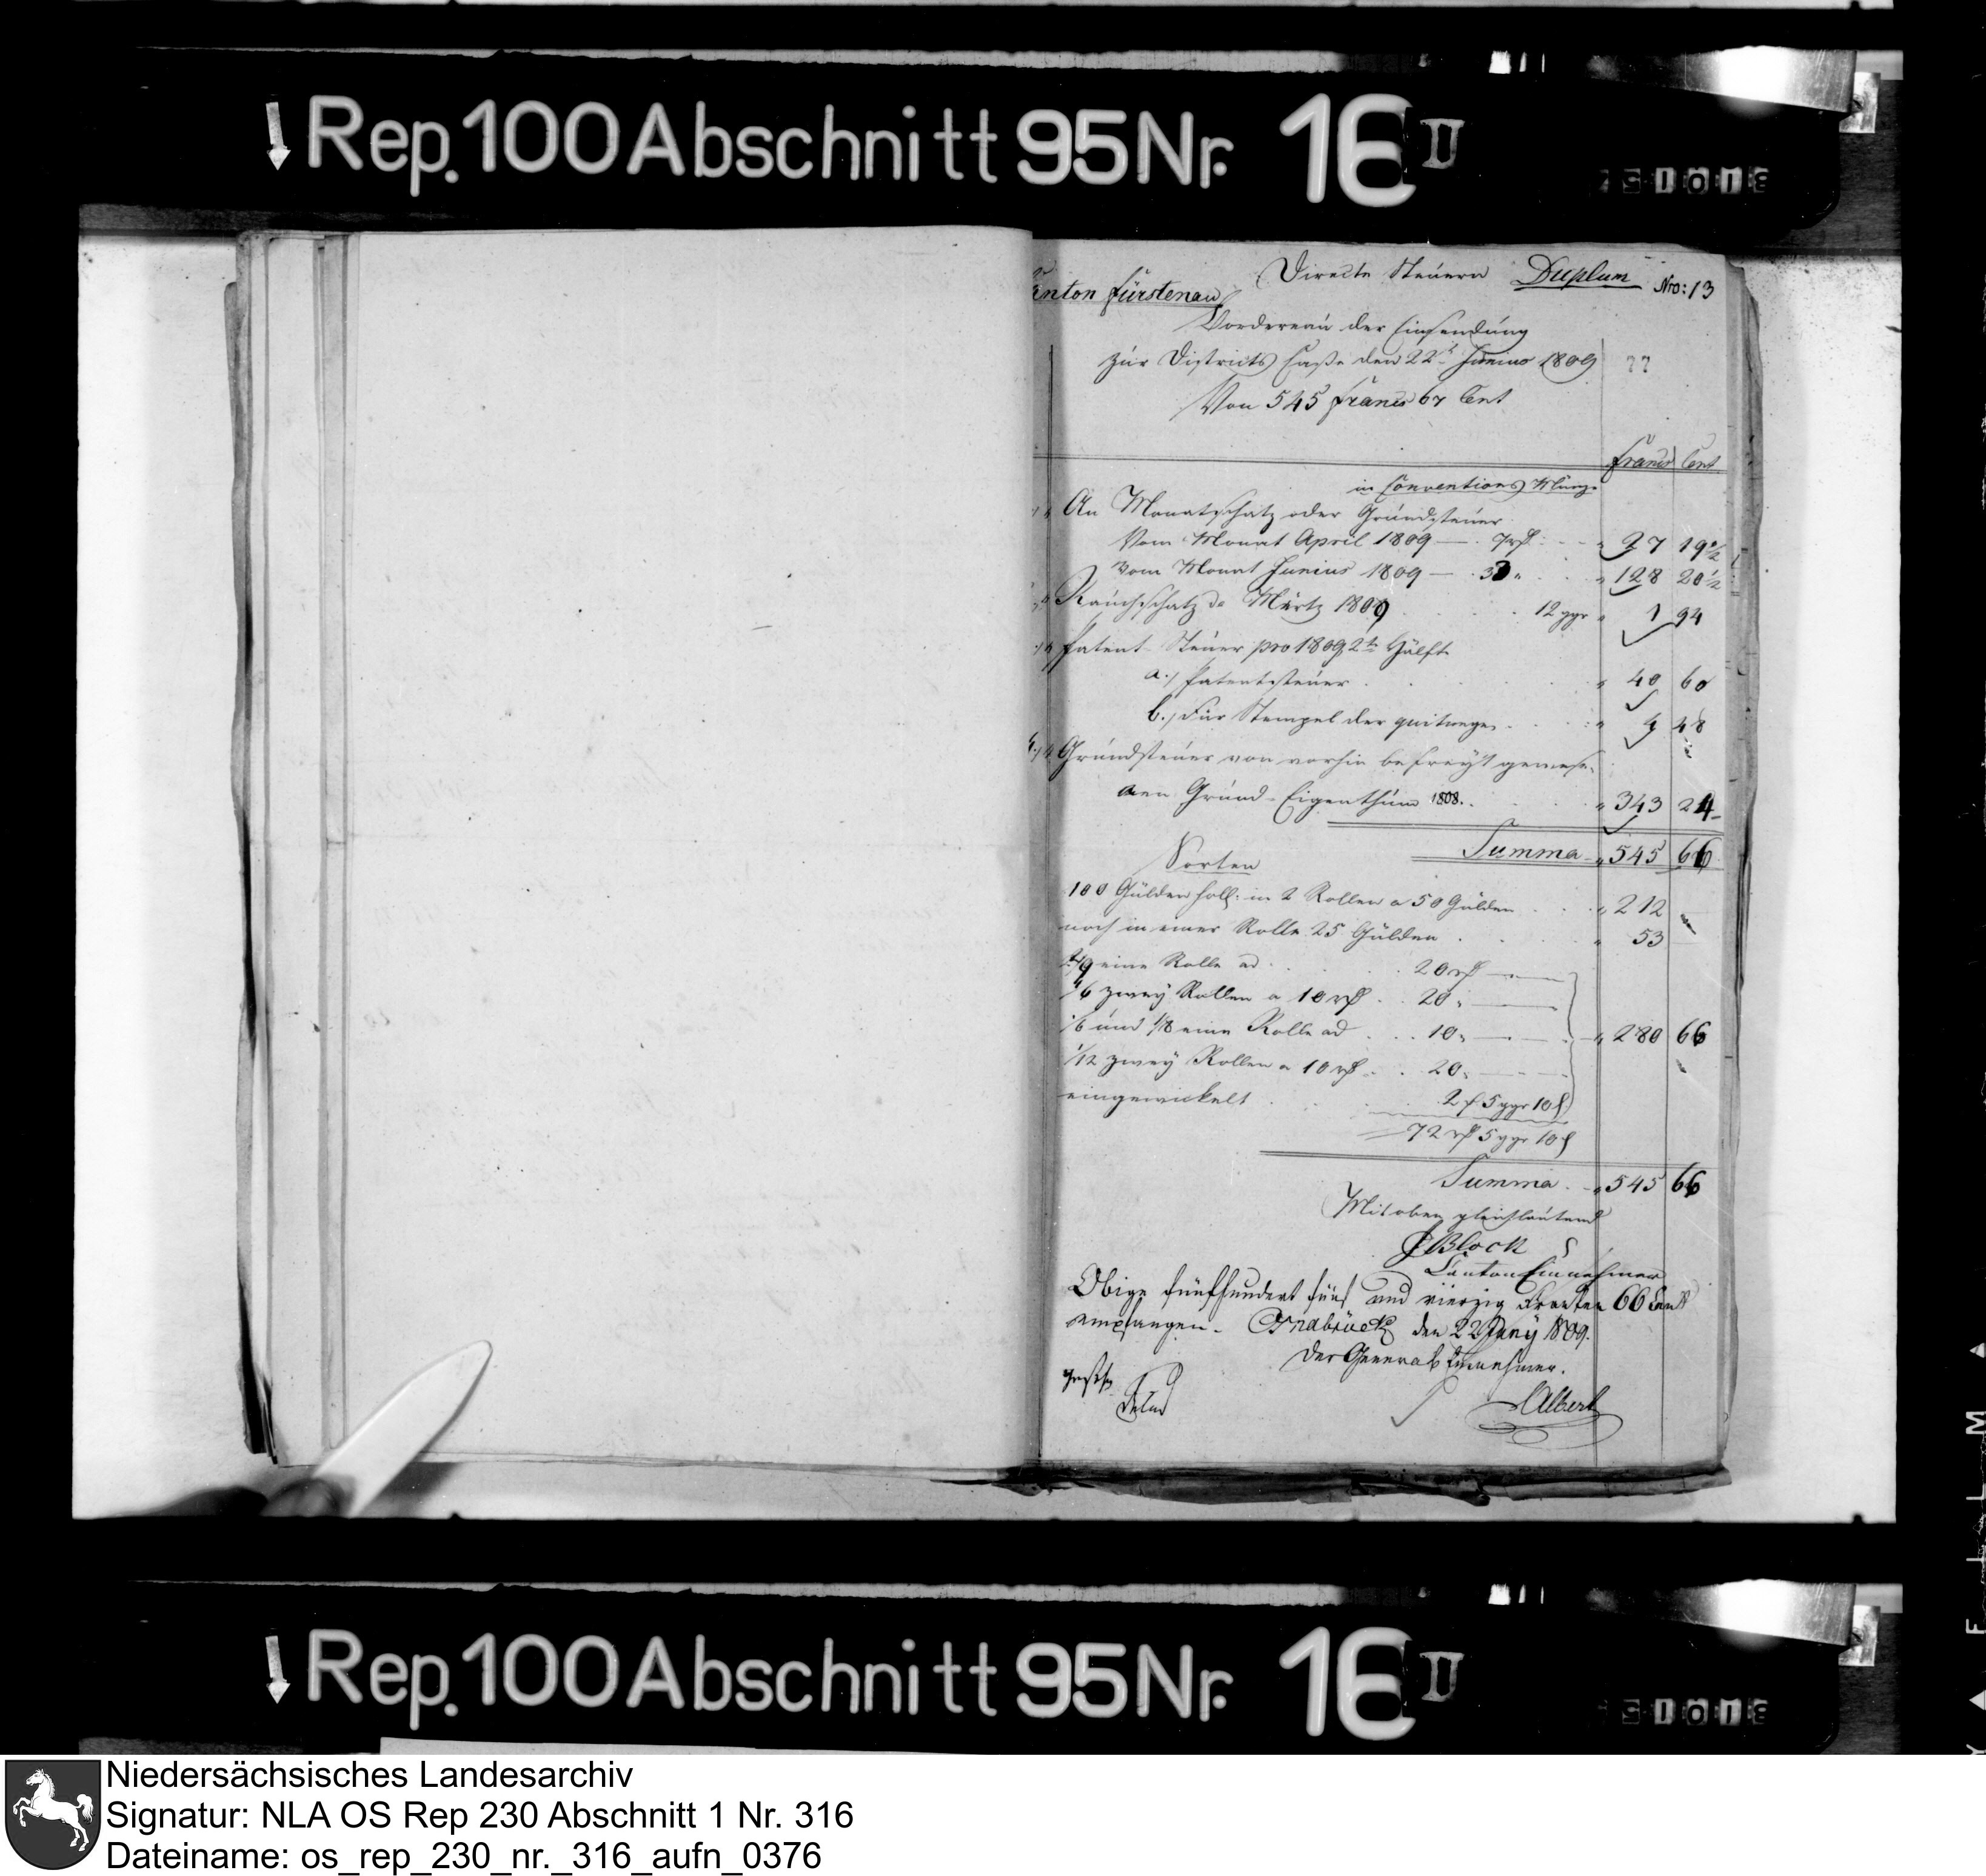 Rep. 100 Abschnitt 95 Nr. 16 II
Directe Steuern Duplum Nro: 13
Canton Fürstenau
Bordereau der Einsendung
zur Districts Casse den 22t Junius 1809
Von 545 Francs 67 Cent
Francs Cent
in Conventions Münze
An Monatschatz oder Grundsteuer
Vom Monat April 1809 — 7 rthl " 27 19 1/2
vom Monat Junius 1809 — 33 " " 128 20 1/2
Rauchschatz de Märtz 1809 12 ggr " 1 94
Patent Steuer pro 1809 2te Hälfte
a.) Patentsteuer " 40 60
b.) Für Stempel der quitungen " 4 48
Grundsteuer von vorhin befreyt gewese-
nen Grund-Eigenthum 1808. " 343 24
Summa " 545 66
Sorten
100 Gulden holl: in 2 Rollen a 50 Gulden " 212 —
noch in einer Rolle 25 Gulden " 53
eine Rolle ad 20 rthl
1/6 zwey Rollen a 10 rthl 20 "
1/6 und 1/8 eine Rolle ad 10 " " 280 66
1/12 zwey Rollen a 10 rthl 20 "
eingewickelt 2 " 5 ggr 10 d
72 rthl 5 ggr 10 d
Summa " 545 66
Mit oben gleichlautend
Block
Canton Einnehmer
Obige fünfhundert fünf und vierzig Franken 66 Cent
empfangen. Osnabrück den 22 Juny 1809.
Der General Einnehmer.
Albert
Rep. 100 Abschnitt 95 Nr. 16 II
Niedersächsisches Landesarchiv
Signatur: NLA OS Rep 230 Abschnitt 1 Nr. 316
Dateiname: os_rep_230_nr._316_aufn_0376